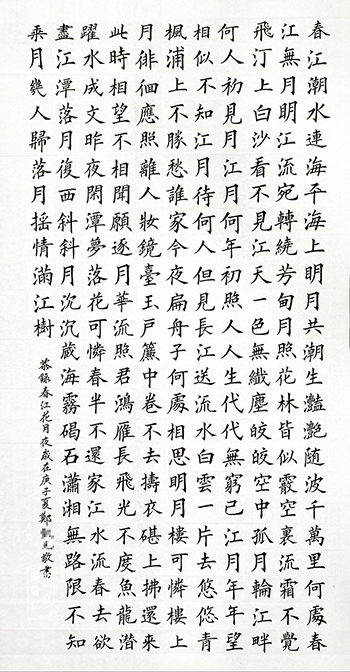 春江潮水連海平海上明月共潮生灩艷随波千萬里何處春
江無月明江流宛轉繞芳甸月照花林皆似霰空裏流霜不覺
飛汀上白沙看不見江天一色無纖塵皎皎空中孤月輪江畔
何人初見月江月何年初照人人生代代無窮已江月年年望
相似不知江月待何人但見長江送流水白雲一片去悠悠青
楓浦上不勝愁誰家今夜扁舟子何處相思明月樓可憐樓上
月徘徊應照離人妝鏡臺玉戶簾中卷不去擣衣碪上拂還來
此時相望不相聞願逐月華流照君鴻雁長飛光不度魚龍潛
躍水成文昨夜閑潭夢落花可憐春半不還家江水流春去欲
盡江潭落月復西斜斜月沉沉藏海霧碣石瀟湘無路限不知
乘月幾人歸落月搖情滿江樹
恭録春江花月夜歲在庚子夏鄭凱敬書